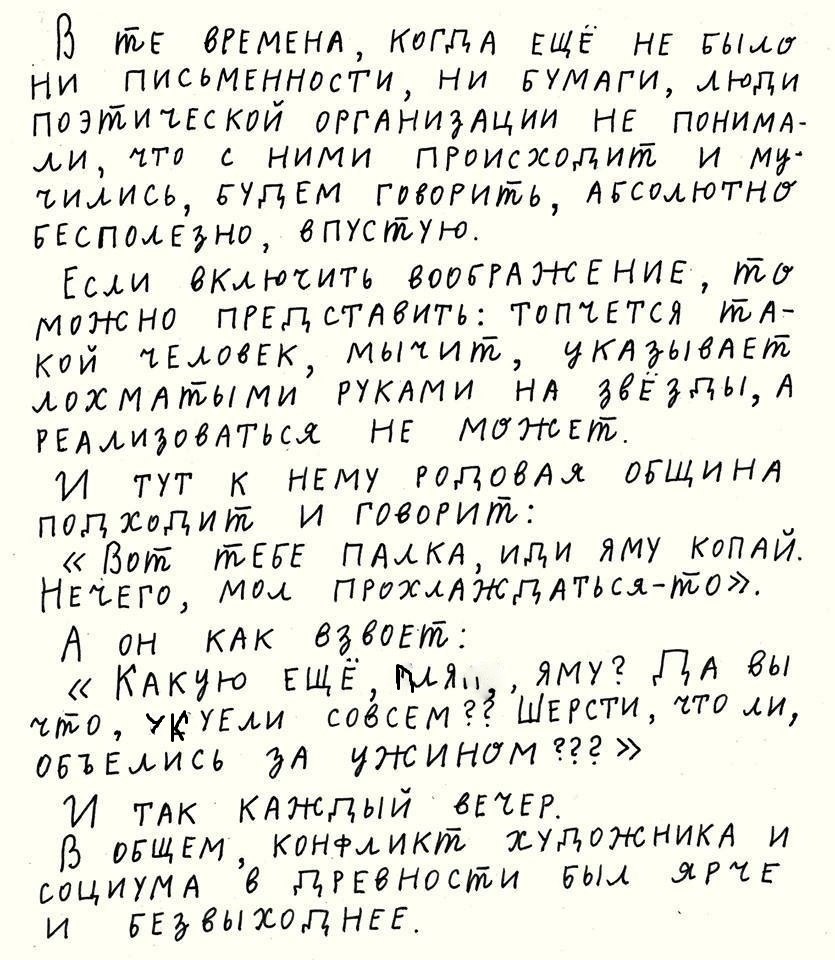 В те времена, когда ещё не было
ни письменности, ни бумаги, люди
поэтической организации не понима-
ли, что с ними происходит и му-
чились, будем говорить, абсолютно
бесполезно, впустую.
Если включить воображение, то
можно представить: топчется та-
кой человек, мычит, указывает
лохматыми руками на звёзды, а
реализоваться не может.
И тут к нему родовая община
подходит и говорит:
«Вот тебе палка, иди яму копай.
Нечего, мол прохлаждаться-то».
А он как взвоет:
« Какую ещё, , яму? Да вы
что, совсем?? Шерсти, что ли,
объелись за ужином???»
И так каждый вечер.
В общем, конфликт художника и
социума в древности был ярче
и безвыходнее.